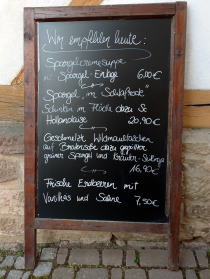 Wir empfehlen heute:
Spargelcremesuppe
Spargel-Einlage 6,00€
Spargel im "Schlafrock"
Schinken im dazu Sc
Hollandaise 20,90€
Geschmelzte Wildmaultaschen
auf dazu gegrillter
grüner Spargel und Kräuter-
16,90€
Frische Erdbeeren mit
Vanilleeis und Sahne 7,50€